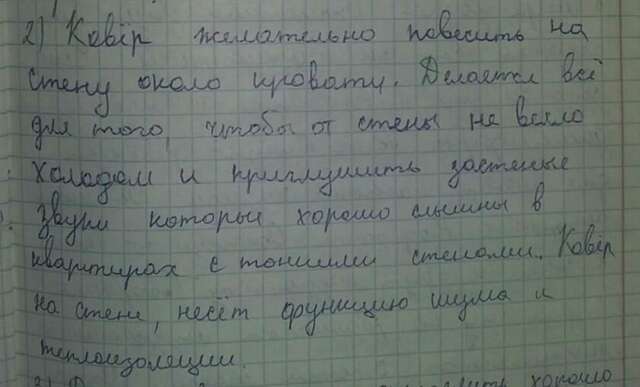 2) Ковір желательно повесить на
стену около кровати. Делается всё
для того, чтобы от стены не веяло
холодом и приглушить застеные
звуки которые хорошо слышны в
квартирах с тонкими стенами. Ковір
на стене, несёт функцию шума и
теплоизоляции.
хорошо